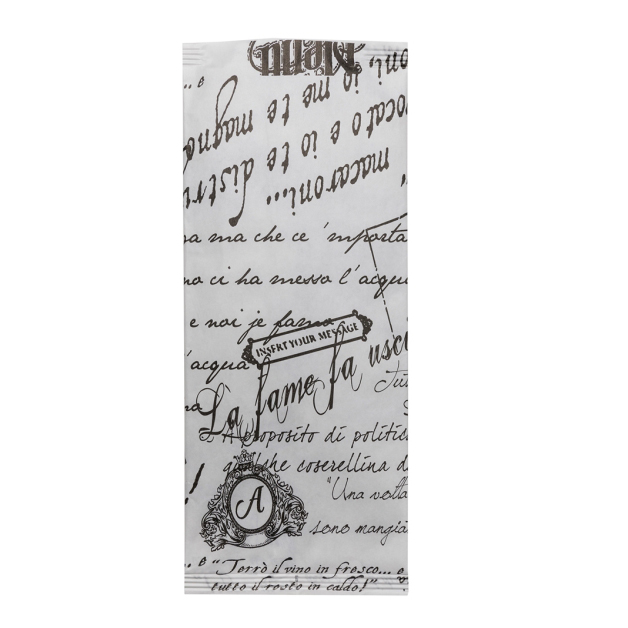 Menu
oni, io me te magno
vocato e io te distru
macaroni..."
a ma che ce 'mporta
no ci ha messo l'acqua
e noi je famo
INSERT YOUR MESSAGE
l'acqua
La fame fa usci
A proposito di politic
qualche coserellina d
"Una volta
sono mangia
A
e "Terrò il vino in fresco... e
tutto il resto in caldo!"